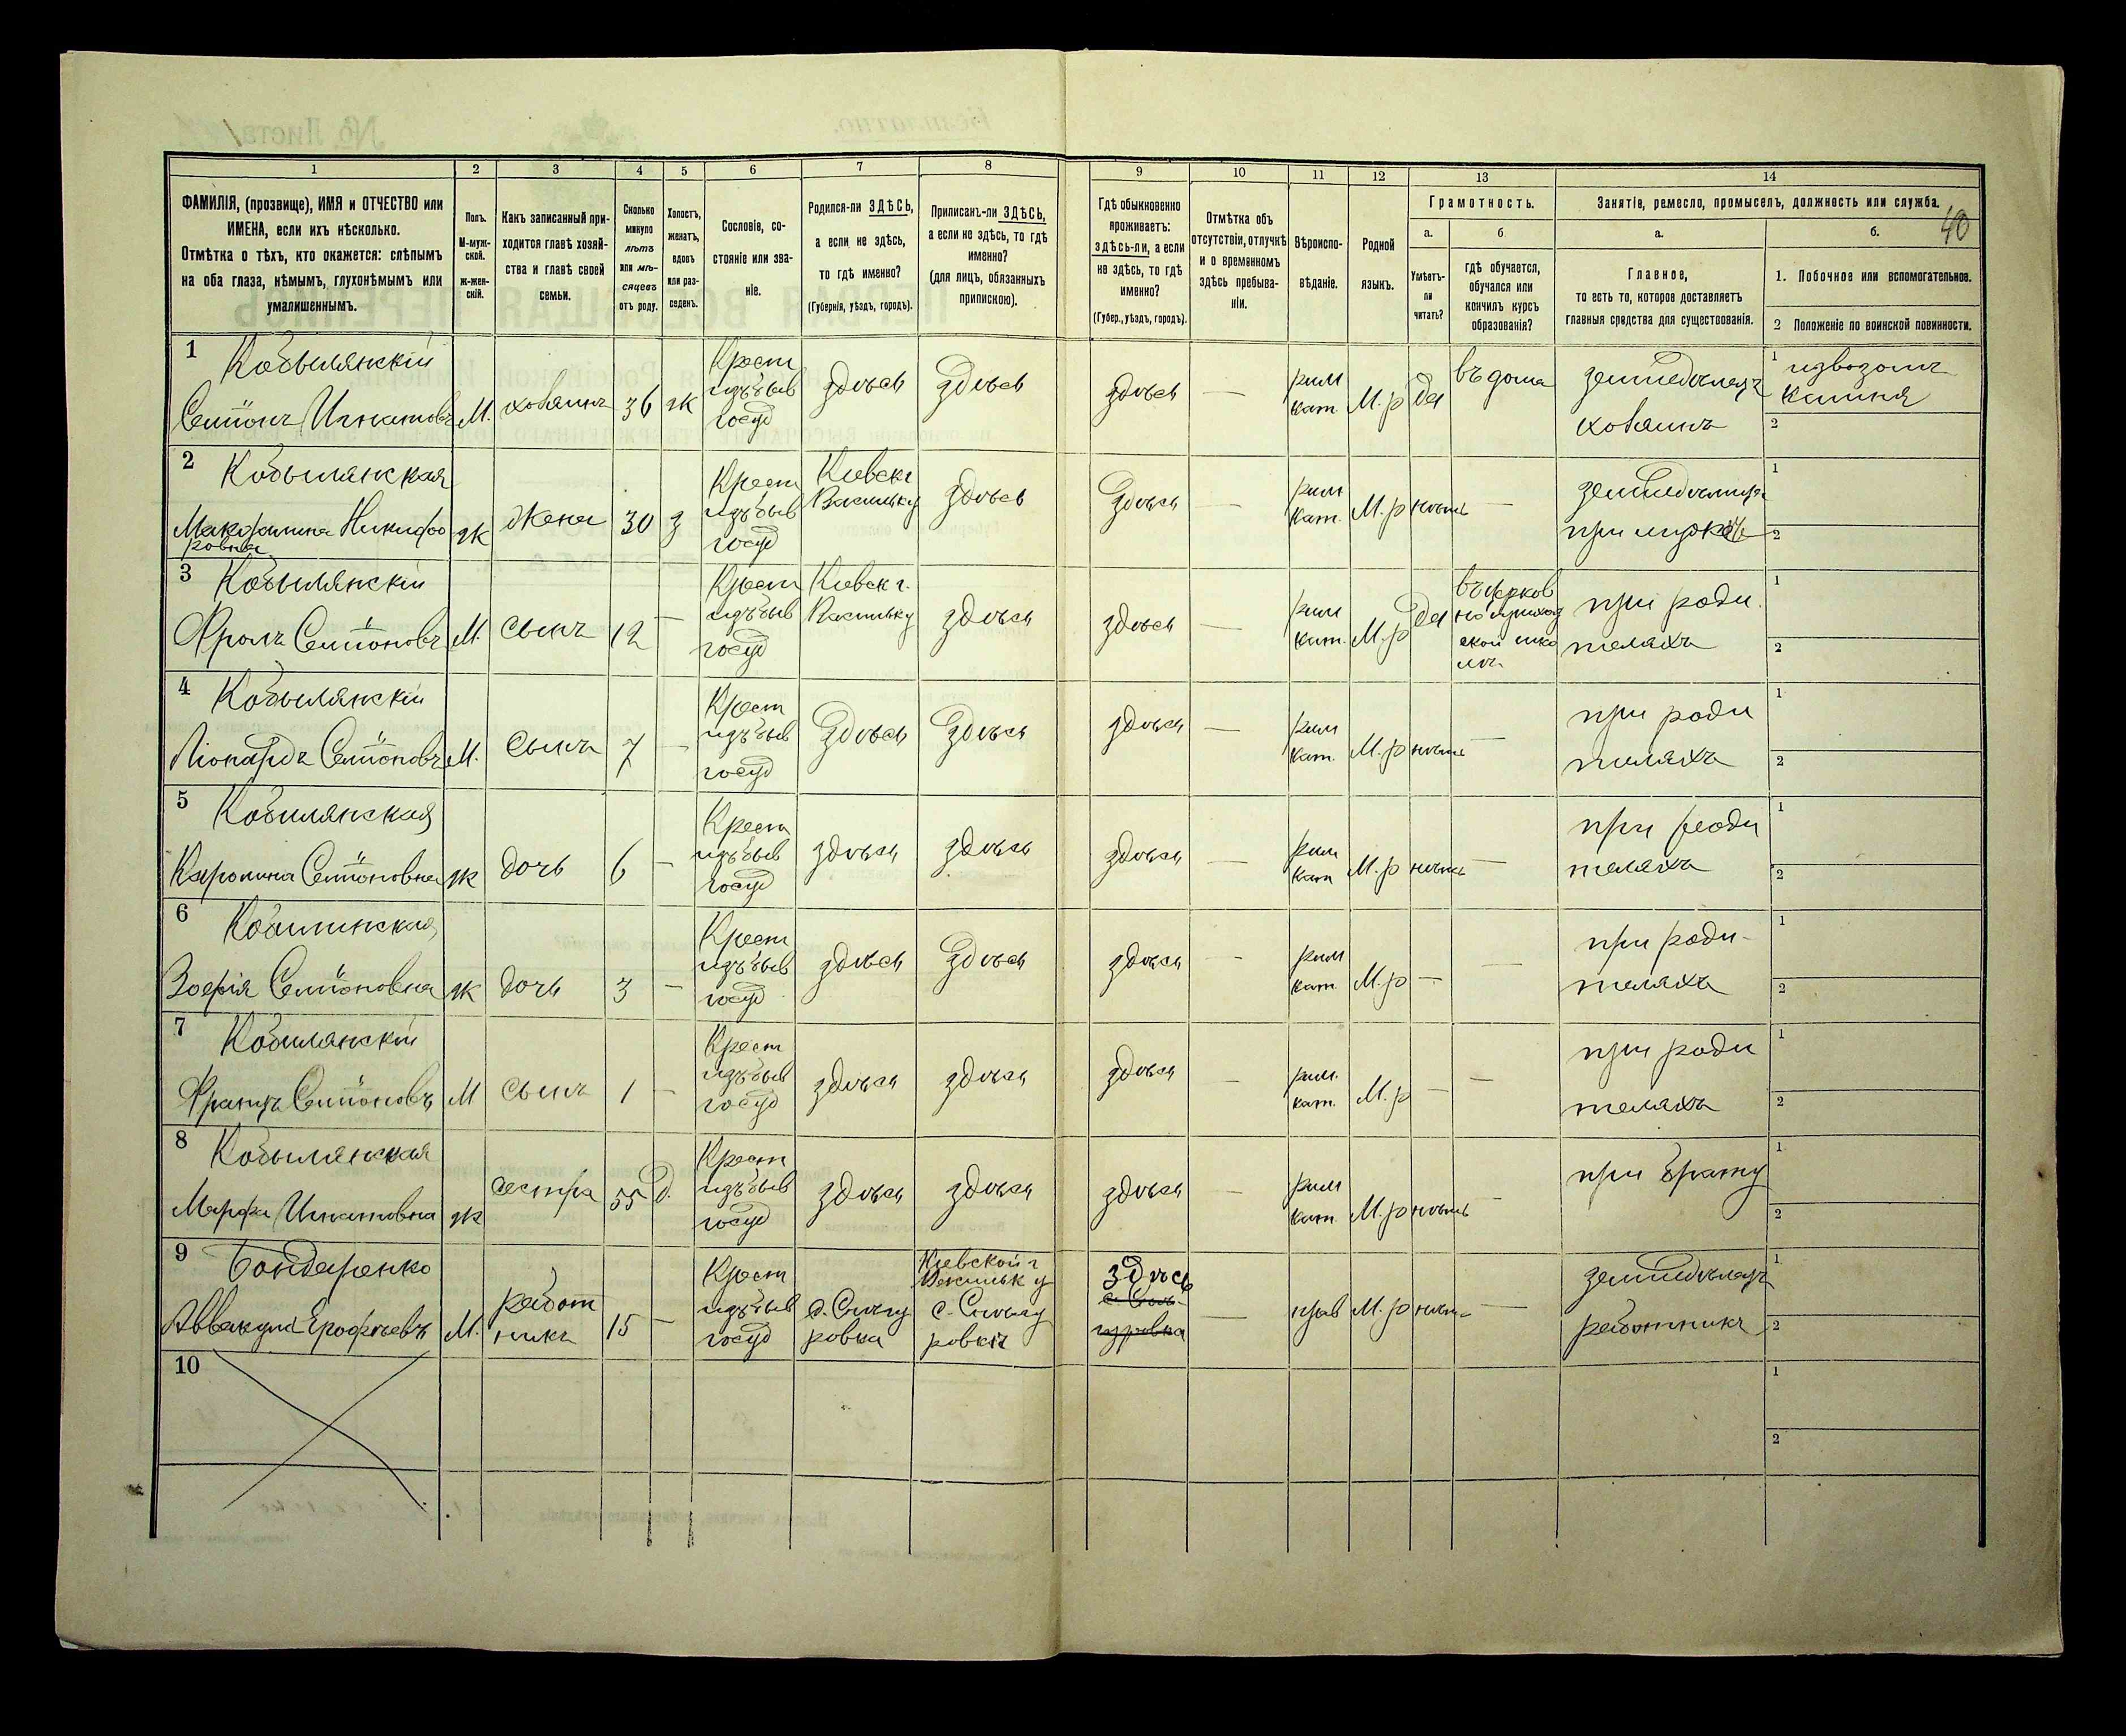 1 2 3 4 5 6 7 8 9 10 11 12 13 14
ФАМИЛІЯ, (прозвище), ИМЯ и ОТЧЕСТВО или
ИМЕНА, если ихъ нѣсколько.
Отмѣтка о тѣхъ, кто окажется: слѣпымъ
на оба глаза, нѣмымъ, глухонѣмымъ или
умалишеннымъ.
Полъ.
М-муж-
ской.
ж-жен-
скій.
Какъ записанный при-
ходится главѣ хозяй-
ства и главѣ своей
семьи.
Сколько
минуло
лѣтъ
или мѣ-
сяцевъ
отъ роду.
Холостъ,
женатъ,
вдовъ
или раз-
веденъ.
Сословіе, со-
стояніе или зва-
ніе.
Родился-ли ЗДѢСЬ,
а если не здѣсь,
то гдѣ именно?
(Губернія, уѣздъ, городъ).
Приписанъ-ли ЗДѢСЬ,
а если не здѣсь, то гдѣ
именно?
(для лицъ, обязанныхъ
припискою).
Гдѣ обыкновенно
проживаетъ:
здѣсь-ли, а если
не здѣсь, то гдѣ
именно?
(Губер., уѣздъ, городъ).
Отмѣтка объ
отсутствіи, отлучкѣ
и о временномъ
здѣсь пребыва-
ніи.
Вѣроиспо-
вѣданіе.
Родной
языкъ.
Грамотность.
а.
Умѣетъ-
ли
читать?
б
гдѣ обучается,
обучался или
кончилъ курсъ
образованія?
Занятіе, ремесло, промыселъ, должность или служба.
40
а.
Главное,
то есть то, которое доставляетъ
главныя средства для существованія.
б.
1. Побочное или вспомогательное.
2 Положеніе по воинской повинности.
1 Кобылянскій
Семіонъ Игнатовъ М. хозяинъ 36 ж
Крест
изъ быв
госуд
здѣсь здѣсь здѣсь —
рим
кат.
М.р да въ дома
земледѣлецъ
хозяинъ
1 извозомъ
камня
2
2 Кобылянская
Никифо
ровна
ж жена 30 з
Крест
изъ быв
госуд
Кіевск г
Васильк у
здѣсь здѣсь —
рим
кат.
М.р нѣтъ —
при мужѣ
1
2
3 Кобылянскій
Фролъ Семіоновъ М. сынъ 12 —
Крест
изъ быв
госуд
Кіевск г.
Васильк у
здѣсь здѣсь —
рим
кат.
М.р да
въ церков
но приход
ской шко
лѣ
при роди
теляхъ
1
2
4 Кобылянскій
Ліонардъ Семіоновъ М. сынъ 7 —
Крест
изъ быв
госуд
здѣсь здѣсь здѣсь —
рим
кат.
М.р нѣтъ —
при роди
теляхъ
1
2
5 Кобилянская
Каролина Семіоновна ж дочь 6 —
Крест
изъ быв
госуд
здѣсь здѣсь здѣсь —
рим
кат
М.р нѣтъ —
при роди
теляхъ
1
2
6 Кобилинская
Зоефія Семіоновна ж дочь 3 —
Крест
изъ быв
госуд
здѣсь здѣсь здѣсь —
рим
кат.
М.р — —
при роди-
теляхъ
1
2
7 Кобилянскій
Францъ Семіоновъ М сынъ 1 —
Крест
изъ быв
госуд
здѣсь здѣсь здѣсь —
рим.
кат.
М.р — —
при роди
теляхъ
1
2
8 Кобылянская
Марфа Игнатовна ж сестра 55 д.
Крест
изъ быв
госуд
здѣсь здѣсь здѣсь —
рим
кат.
М.р нѣтъ —
при брату
1
2
9 Бондаренко
Аввакумъ Ерофѣевъ М.
работ
никъ
15 —
Крест
изъ быв
госуд
ровка
Кіевской г
Васильк у
здѣсь
—
прав М.р нѣтъ —
земледѣлецъ
работникъ
1
2
10
1
2